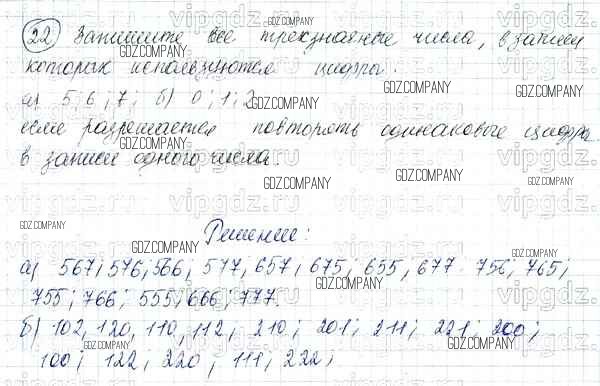 22 Запишите все трехзначные числа, в записи
которых используются цифры:
а) 5; 6; 7; б) 0; 1; 2
если разрешается повторять одинаковые цифры
в записи одного числа.
Решение:
а) 567; 576; 566; 577, 657; 675; 655, 677 756; 765;
755; 766; 555; 666; 777.
б) 102, 120, 110, 112; 210; 201; 211; 221; 200;
100; 122; 220; 111; 222;